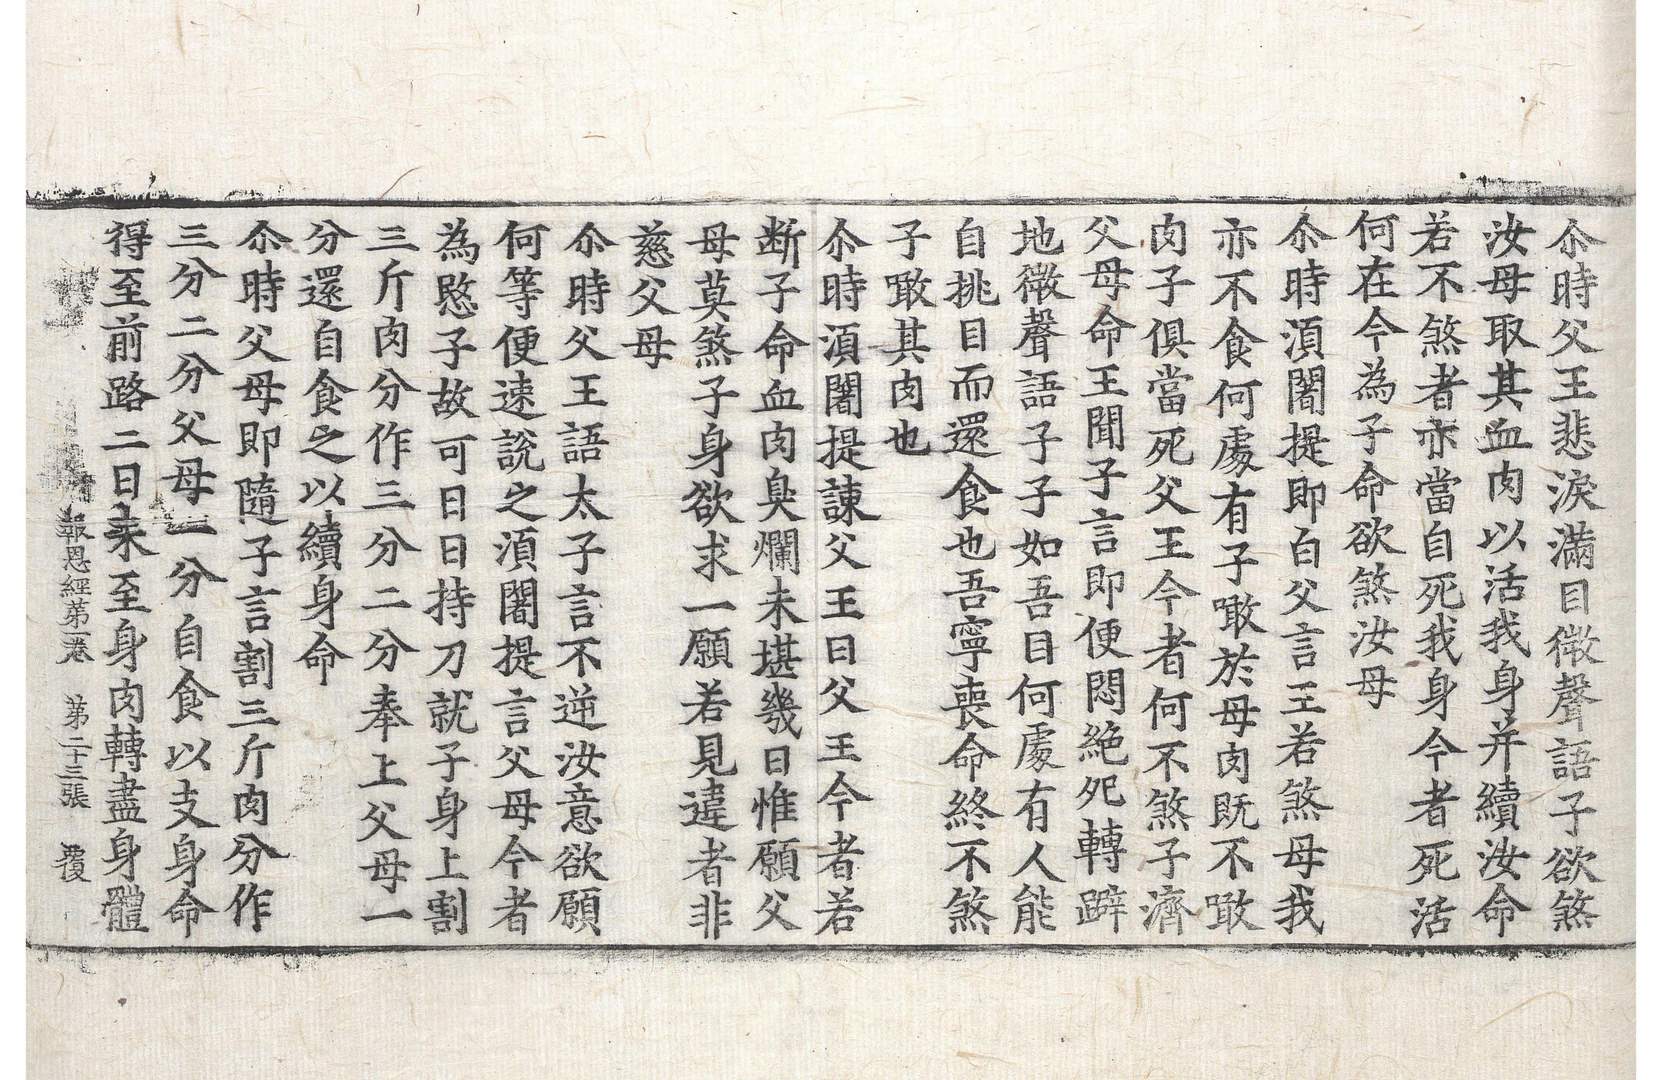 尒時父王悲淚滿目微聲語子欲煞
汝母取其血肉以活我身并續汝命
若不煞者亦當自死我身今者死活
何在今為子命欲煞汝母
尒時湏闍提即白父言王若煞母我
亦不食何處有子噉於母肉既不噉
肉子俱當死父王今者何不煞子濟
父母命王聞子言即便悶絕死轉躃
地微聲語子子如吾目何處有人能
自挑目而還食也吾寧喪命終不煞
子噉其肉也
尒時湏闍提諫父王曰父王今者若
断子命血肉臭爛未堪幾日惟願父
母莫煞子身欲求一願若見違者非
慈父母
尒時父王語太子言不逆汝意欲願
何等便速說之湏闍提言父母今者
為愍子故可日日持刀就子身上割
三斤肉分作三分二分奉上父母一
分還自食之以續身命
尒時父母即隨子言割三斤肉分作
三分二分父母一分自食以支身命
得至前路二日未至身肉轉盡身體
報恩經苐一卷 苐二十三張 覆